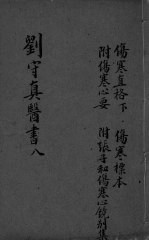 傷寒直格下　傷寒標本
附傷寒心要　附張子和傷寒心鏡別集
劉守真醫書八